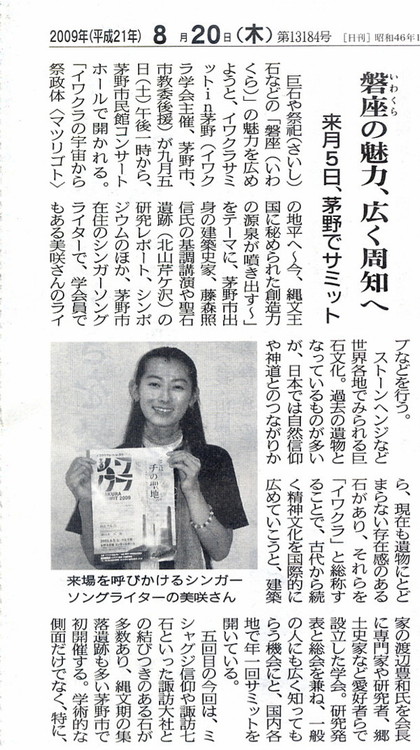 2009年(平成21年) 8月20日(木) 第13184号 [日刊] 昭和46年1
いわくら
磐座の魅力、広く周知へ
来月5日、茅野でサミット
巨石や祭祀(さいし)
石などの「磐座(いわ
くら)」の魅力を広め
ようと、イワクラサミ
ットin茅野(イワク
ラ学会主催、茅野市、
市教委後援)が九月五
日(土)午後一時から、
茅野市民館コンサート
ホールで開かれる。
「イワクラの宇宙から
祭政体〈マツリゴト〉
の地平へ〜今、縄文王
国に秘められた創造力
の源泉が噴き出す〜」
をテーマに、茅野市出
身の建築史家、藤森照
信氏の基調講演や聖石
遺跡(北山芹ケ沢)の
研究レポート、シンポ
ジウムのほか、茅野市
在住のシンガーソング
ライターで、学会員で
もある美咲さんのライ
ブなどを行う。
ストーンヘンジなど
世界各地でみられる巨
石文化。過去の遺物と
なっているものが多い
が、日本では自然信仰
や神道とのつながりか
ら、現在も遺物にとど
まらない存在感のある
石があり、それらを
「イワクラ」と総称す
ることで、古代から続
く精神文化を国際的に
広めていこうと、建築
家の渡辺豊和氏を会長
に専門家や研究者、郷
土史家など愛好者らで
設立した学会。研究発
表と総会を兼ね、一般
の人にも広く知っても
らう機会にと、国内各
地で年一回サミットを
開いている。
五回目の今回は、ミ
シャグジ信仰や諏訪七
石といった諏訪大社と
の結びつきのある石が
多数あり、縄文期の集
落遺跡も多い茅野市で
初開催する。学術的な
側面だけでなく、特に、
イワクラ
来場を呼びかけるシンガー
ソングライターの美咲さん